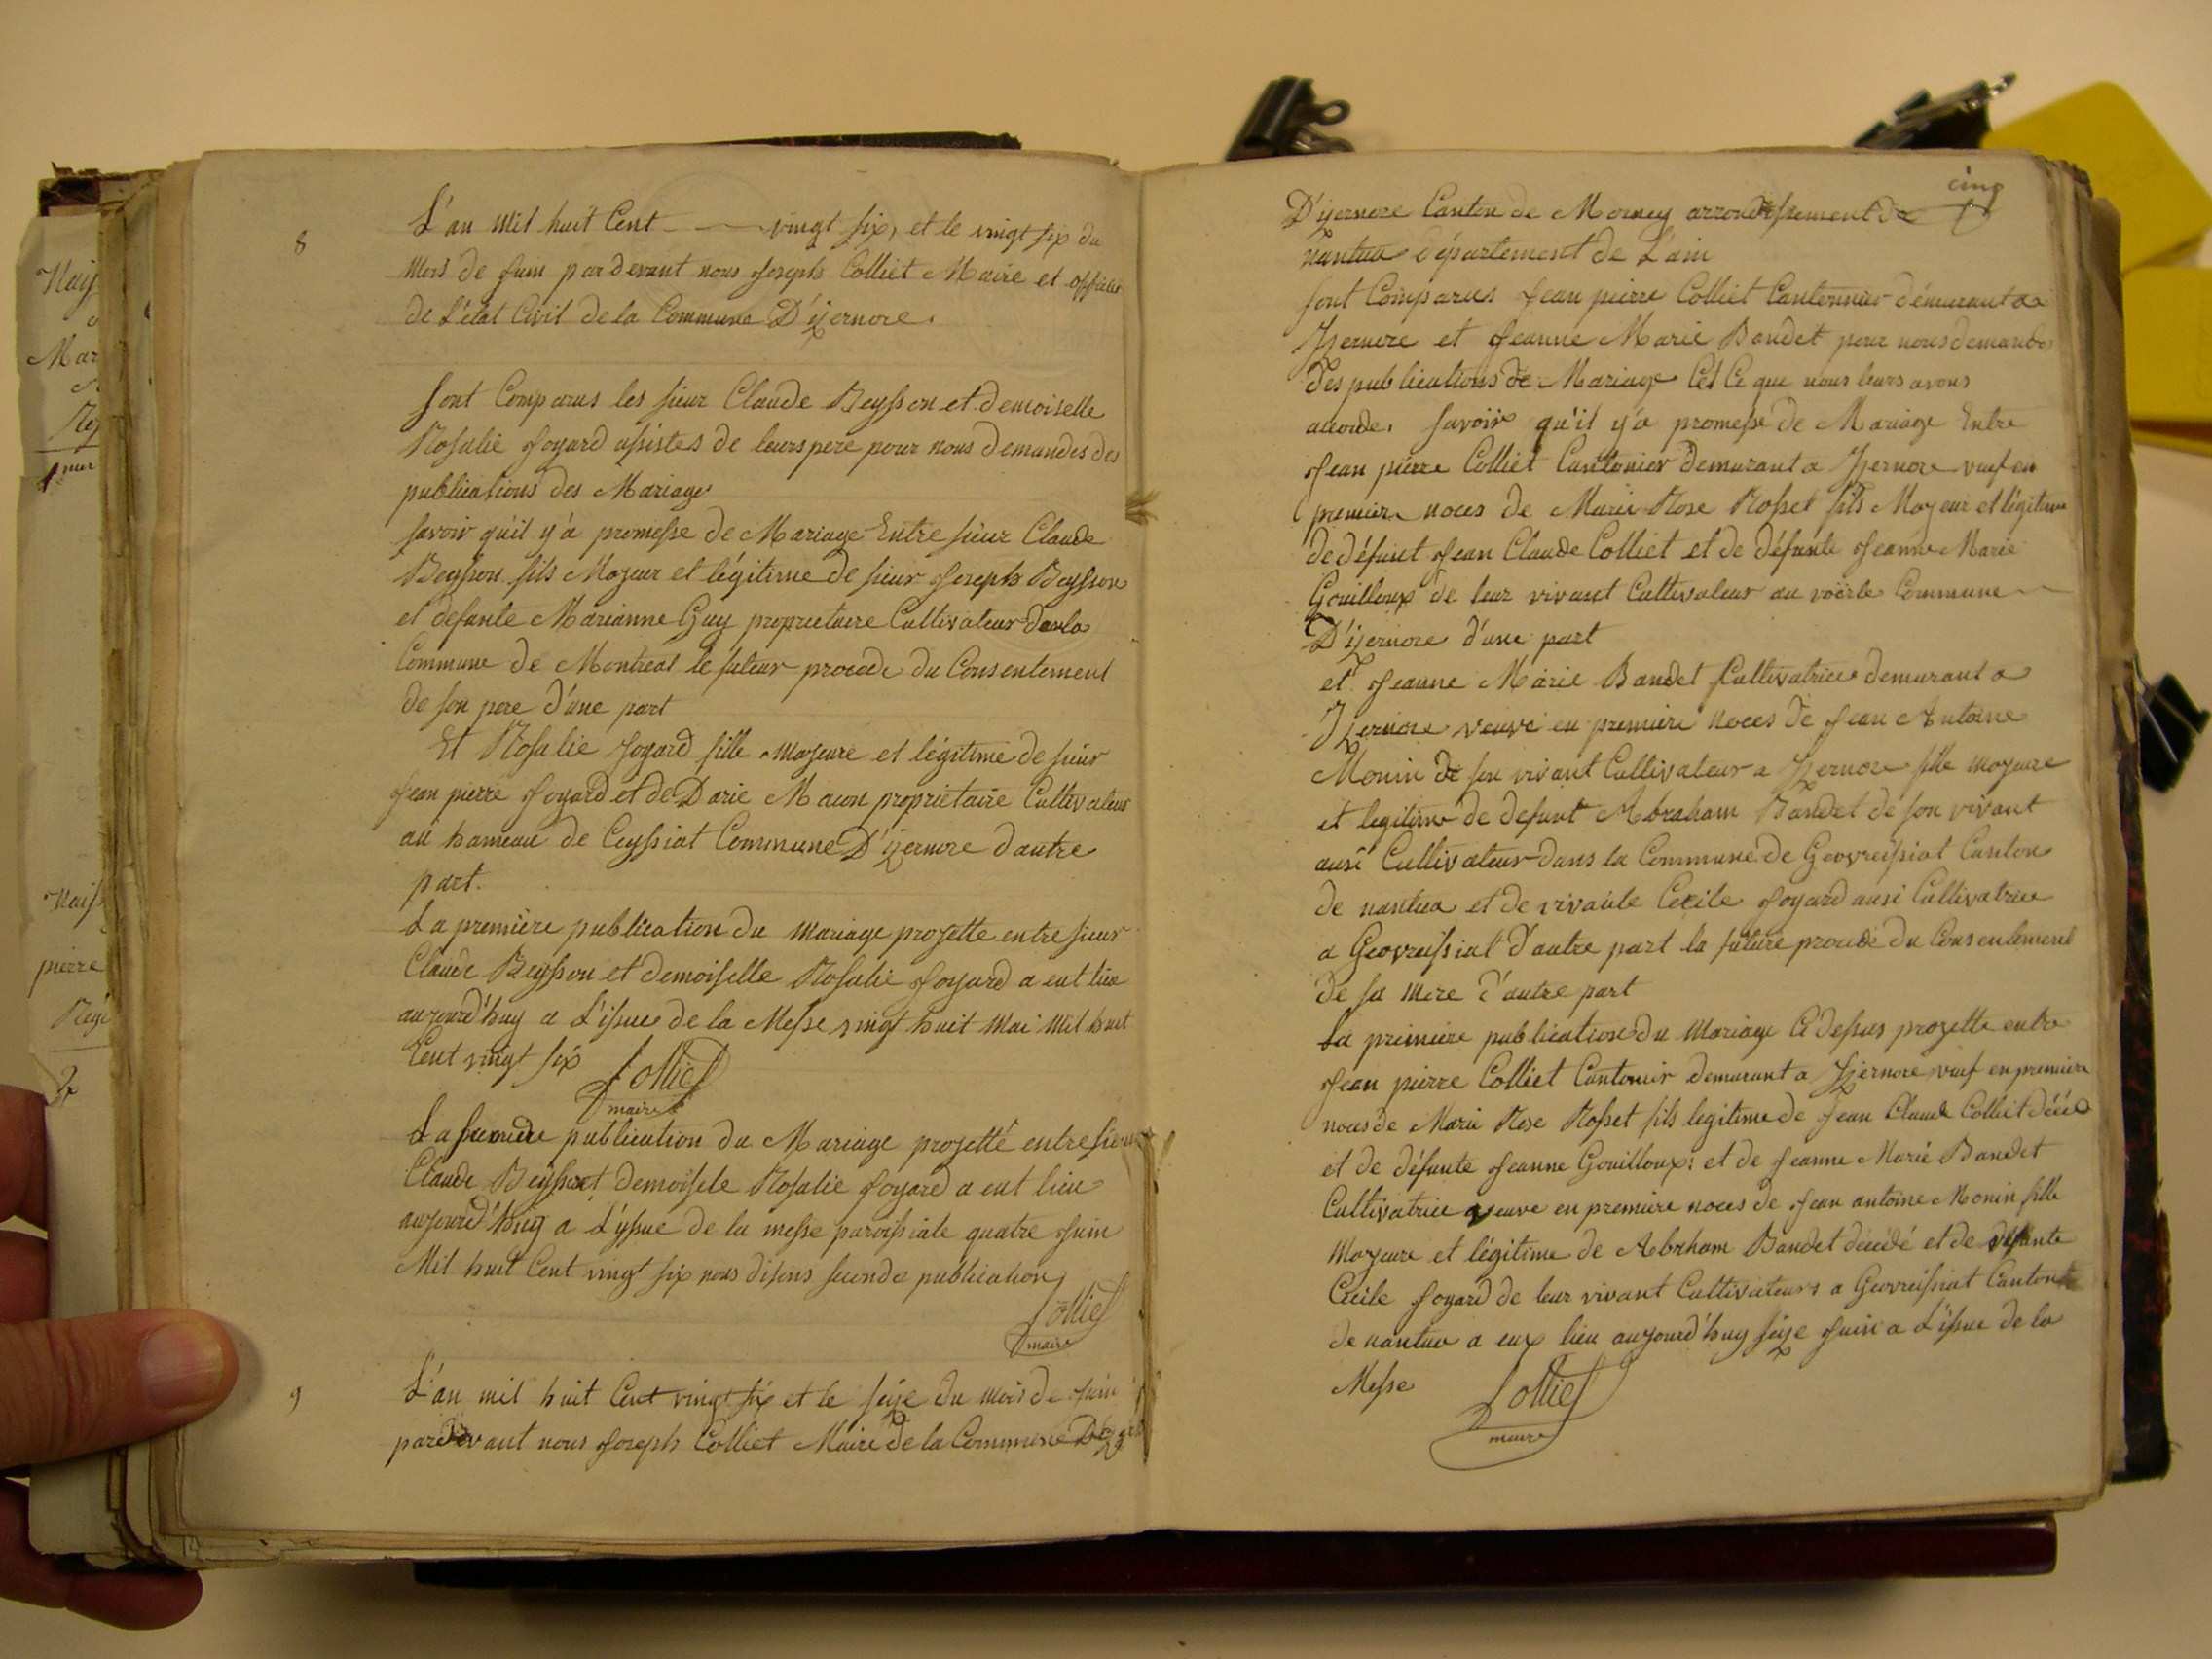 Naiss
Mar
pierre
8
L'an mil huit Cent vingt six, et le vingt six du
mois de Juin pardevant nous Joseph Colliet Maire et officier
de L'état Civil de la Commune D'izernore.
sont Comparus les sieur Claude Beysson et demoiselle
Rosalie Joyard assistes de leurs pere pour nous demandes des
publications des Mariage
savoir qu'il y'à promesse de Mariage Entre sieur Claude
Beysson fils Majeur et légitime de sieur Joseph Beysson
et defunte Marianne Guy proprietaire Cultivateur dans la
Commune de Montreal le futeur procede du Consentement
de son pere d'une part
Et Rosalie Joyard fille majeure et légitime de sieur
Jean pierre Joyard et de Darie Macon propriétaire Cultivateur
au hameau de Ceyssiat Commune D'izernore dautre
part.
La première publication du mariage projette entre sieur
Claude Beysson et demoiselle Rosalie Joyard a eut lieu
aujourd'huy a L'issue de la Messe vingt huit Mai Mil huit
Cent vingt six Colliet
maire
La seconde publication du Mariage projetté entre sieur
Claude Beysson et demoisele Rosalie Joyard a eut lieu
aujourd'huy a L'yssue de la messe paroissiale quatre Juin
Mil huit Cent vingt six nous disons seconde publication
Colliet
maire
9
L'an mil huit Cent vingt six et le seize du mois de Juin
pardevant nous Joseph Colliet Maire de la Commune
cinq
D'izernore Canton de Mornay arrondissement de
nantua département de L'ain
sont Comparus Jean pierre Colliet Cantonnier démurant a
Izernore et Jeanne Marie Baudet pour nous demander
des publications de Mariage Cel Ce que nous leurs avons
accorde. savoir qu'il y'a promesse de Mariage Entre
Jean pierre Colliet Cantonier demurant a Izernore veuf en
premiere noces de Marie Rose Rosset fils Mayeur et légitime
de défunt Jean Claude Colliet et de défunte Jeanne Marie
Gouilloux de leur vivant Cultivateur au voërle Commune
D'izernore d'une part
et Jeanne Marie Baudet Cultivatrice demurant a
Izernore veuve en premiere noces de Jean Antoine
Monin de son vivant Cultivateur a Izernore fille mayeure
et legitime de defunt Abraham Baudet de son vivant
ausi Cultivateur dans la Commune de Geovreissiat Canton
de nantua et de vivante Cecile Joyard ausi Cultivatrice
a Geovreissiat D'autre part la future procede du Consentement
de sa mere d'autre part
La primiere publication du Mariage Ci Dessus projette entre
Jean pierre Colliet Cantonier demurant a Izernore veuf en premiere
noces de Marie Rose Rosset fils legitime de Jean Claude Colliet décédé
et de défunte Jeanne Gouilloux; et de Jeanne Marie Baudet
Cultivatrice veuve en premiere noces de Jean antoine Monin fille
mayeure et légitime de Abrham Baudet décédé et de défunte
Cecile Joyard de leur vivant Cultivateurs a Geovreissiat Canton
de nantua a eux lieu aujourd'huy seize Juin a L'issue de la
Messe Colliet
maire